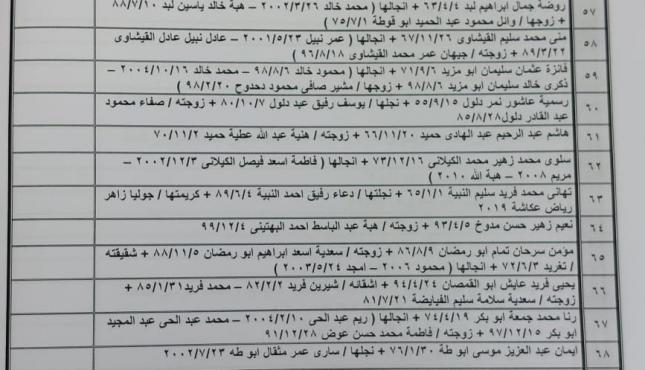 ٥٧ روضة جمال ابراهيم لبد ٦٣/٤/٤ + انجالها ( محمد خالد ٢٠٠٢/٣/٢٦ – هبة خالد ياسين لبد ٨٨/٧/١٠
+ زوجها / وائل محمود عبد الحميد ابو قوطة ٧٥/٧/١ )
٥٨ منى محمد سليم القيشاوى ٦٧/١١/٢٦ + انجالها ( عمر نبيل ٢٠٠١/٥/٢٣ – عادل نبيل عادل القيشاوى
٨٩/٣/٢٢ + زوجته / جيهان عمر محمد القيشاوى ٩٦/٨/١٨ )
٥٩ فائزة عثمان سليمان ابو مزيد ٧١/٩/٦ + انجالها ( محمود خالد ٩٨/٨/٦ – محمد خالد ٢٠٠٤/١٠/١٦ –
ذكرى خالد سليمان ابو مزيد ٩٨/٨/٦ + زوجها / مشير صافى محمود دحدوح ٩٨/٢/٢٠ )
٦٠ رسمية عاشور نمر دلول ٥٥/٩/١٥ + نجلها / يوسف رفيق عبد دلول ٨٠/١٠/٧ + زوجته / صفاء محمود
عبد القادر دلول ٨٥/٨/٢٨
٦١ هاشم عبد الرحيم عبد الهادى حميد ٦٦/١١/٢٠ + زوجته / هنية عبد الله عطية حميد ٧٠/١١/٢
٦٢ سلوى محمد زهير محمد الكيلانى ٧٣/١٢/١٦ + انجالها ( فاطمة اسعد فيصل الكيلانى ٢٠٠٢/١٢/٣ –
مريم ٢٠٠٨ – هبة الله ٢٠١٠ )
٦٣ تهانى محمد فريد سليم النبية ٦٥/١/١ + نجلتها / دعاء رفيق احمد النبية ٨٩/٦/٤ + كريمتها / جوليا زاهر
رياض عكاشة ٢٠١٩
٦٤ نعيم زهير حسن مدوخ ٩٣/٤/٥ + زوجته / هبة عبد الباسط احمد البهتينى ٩٩/١٢/٤
٦٥ مؤمن سرحان تمام ابو رمضان ٨٦/٨/٩ + زوجته / سعدية اسعد ابراهيم ابو رمضان ٨٨/١١/٥ + شقيقته
/ تغريد ٧٢/٦/٣ + انجالها ( محمود ٢٠٠٦ – امجد ٢٠٠٣/٥/٢٤ )
٦٦ يحيى فريد عايش ابو القمصان ٩٤/٤/٢٤ + اشقائه / شيرين فريد ٨٢/٢/٢ – محمد فريد ٨٥/١/٣١ +
زوجته / سعدية سلامة سليم الفيايضة ٨١/٧/٢١
٦٧ رنا محمد جمعة ابو بكر ٧٤/٤/١٩ + انجالها ( ريم عبد الحى ٢٠٠٤/٢/١٠ – محمد عبد الحى عبد المجيد
ابو بكر ٩٧/١٢/١٥ + زوجته / فاطمة محمد حسن عوض ٩١/١٢/٢٨
٦٨ ايمان عبد العزيز موسى ابو طة ٧٦/١/٣٠ + نجلها / سارى عمر مثقال ابو طه ٢٠٠٢/٧/٢٣